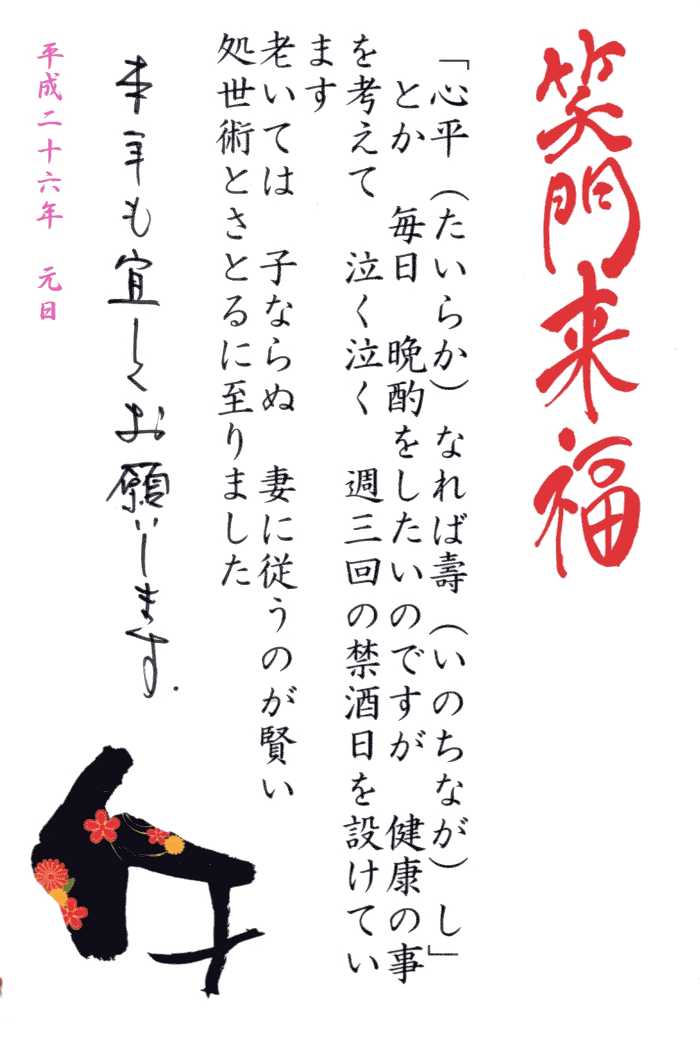 笑門来福
「心平（たいらか）なれば壽（いのちなが）し」
とか　毎日　晩酌をしたいのですが　健康の事
を考えて　泣く泣く　週三回の禁酒日を設けてい
ます
老いては　子ならぬ　妻に従うのが賢い
処世術とさとるに至りました
本年も宜しくお願いします.
平成二十六年　元日